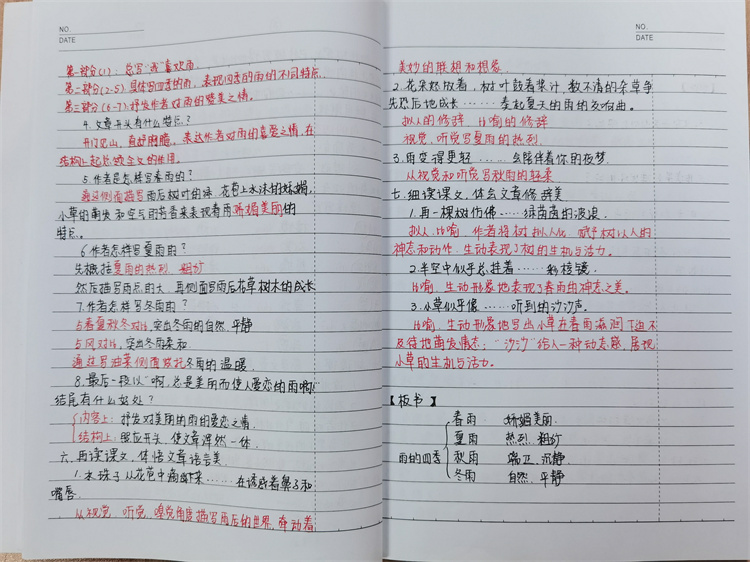 NO.
DATE
第一部分(1)：总写"我"喜欢雨。
第二部分(2-5)具体写四季的雨，表现四季的雨的不同特点。
第三部分(6-7)抒发作者对雨的赞美之情。
4.文章开头有什么特点？
开门见山，直抒胸臆，表达作者对雨的喜爱之情，在
结构上起总领全文的作用。
5.作者是怎样写春雨的？
通过侧面描写雨后树叶的绿,花苞上水珠的妩媚,
小草的萌发和空气的芳香来表现春雨娇媚美丽的
特点。
6.作者怎样写夏雨的？
先概括夏雨的热烈、粗犷
然后描写雨点的大,再侧面写雨后花草树木的成长
7.作者怎样写冬雨的？
与春夏秋冬对比,突出冬雨的自然、平静
与风对比,突出冬雨柔和
通过写油菜侧面衬托冬雨的温暖
8.最后一段以"啊,总是美丽而使人爱恋的雨啊"
结尾有什么好处？
内容上：抒发对美丽的雨的爱恋之情。
结构上：照应开头,使文章浑然一体.
六、再读课文,体悟文章语言美.
1.水珠子从花苞中滴下来……在诱惑着鼻子和
嘴唇.
从视觉、听觉、嗅觉角度描写雨后的世界,牵动着
NO.
DATE
美妙的联想和想象.
2.花朵怒放着,树叶鼓着浆汁,数不清的杂草争
先恐后地成长……奏起夏天的雨的交响曲。
拟人的修辞 比喻的修辞
视觉、听觉写夏雨的热烈.
3.雨变得更轻……会陪伴着你的夜梦.
从视觉和听觉写秋雨的轻柔
七.细读课文,体会文章修辞美
1.每一棵树仿佛……绿茵茵的波浪.
拟人、比喻,作者将树拟人化,赋予树以人的
神态和动作,生动表现了树的生机与活力。
2.半空中似乎总挂着……彩棱镜.
比喻,生动形象地表现了春雨的神态之美.
3.小草似乎像……听到的沙沙声.
比喻,生动形象地写出小草在春雨滋润下迫不
及待地萌发情态；"沙沙"给人一种动态感,展现
小草的生机与活力。
【板书】
雨的四季
春雨 娇媚美丽.
夏雨 热烈、粗犷
秋雨 端庄、沉静.
冬雨 自然、平静